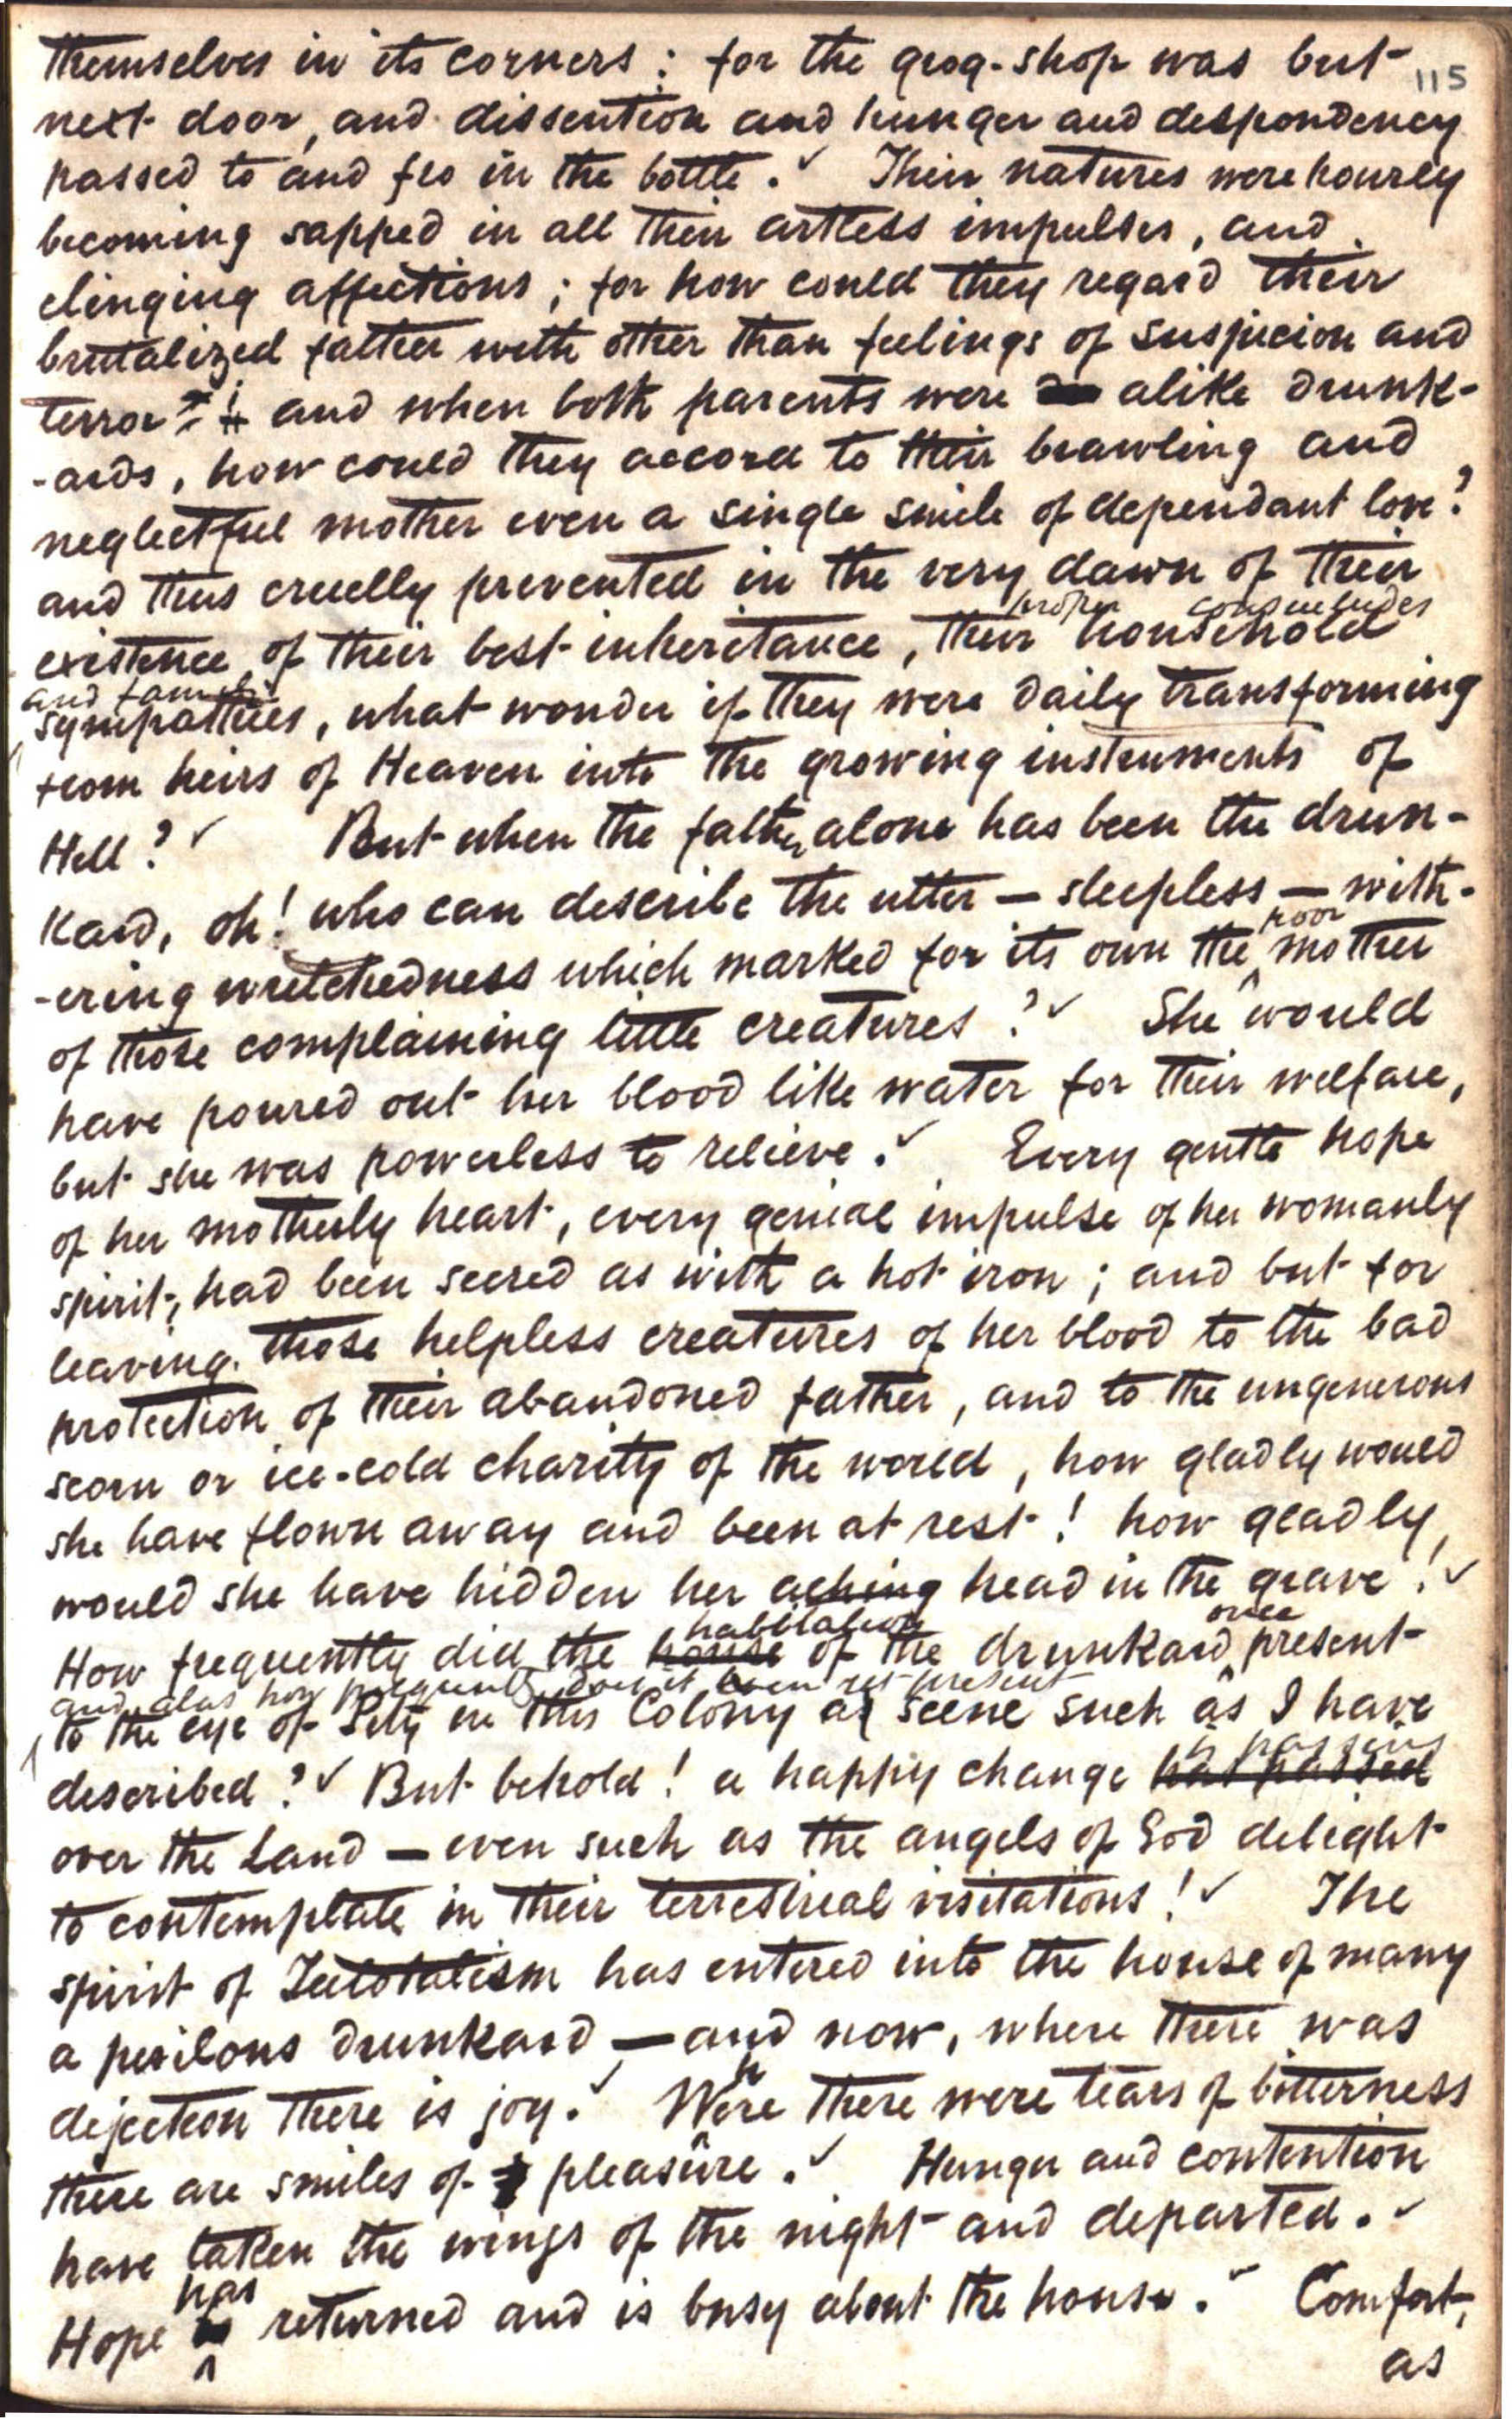 themselves in its corners : for the grog-shop was but 115
next door, and dissention and hunger and despondency
passed to and fro in the bottle. Their natures were hourly
becoming sapped in all their artless impulses, and
clinging affections ; for how could they regard their
brutalized father with other than feelings of suspicion and
terror ? and when both parents were alike drunk-
-ards, how could they accord to their brawling and
neglectful mother even a single smile of dependant love?
and thus cruelly prevented in the very dawn of their
proper
existence of their best inheritance, their household
and family
sympathies, what wonder if they were daily transforming
from heirs of Heaven into the growing instruments of
Hell? But when the father alone has been the drun-
kard, oh! who can describe the utter — sleepless — with-
poor
-ering wretchedness which marked for its own the mother
of those complaining little creatures? She would
have poured out her blood like water for their welfare,
but she was powerless to relieve. Every gentle hope
of her motherly heart, every genial impulse of her womanly
spirit, had been seered as with a hot iron ; and but for
leaving those helpless creatures of her blood to the bad
protection of their abandoned father, and to the ungenerous
scorn or ice-cold charity of the world, how gladly would
she have flown away and been at rest! how gladly
would she have hidden her aching head in the grave!
habitation once
How frequently did the house of the drunkard present
and alas how frequently does it even yet present
to the eye of Pity in this Colony a scene such as I have
is passing
described? But behold! a happy change has passed
over the Land — even such as the angels of God delight
to contemplate in their terrestrial visitations! The
spirit of Teetotalism has entered into the house of many
a perilous drunkard — and now, where there was
h
dejection there is joy. Were there were tears of bitterness
there are smiles of pleasure. Hunger and contention
have taken the wings of the night and departed.
has
Hope returned and is busy about the house. Comfort,
as